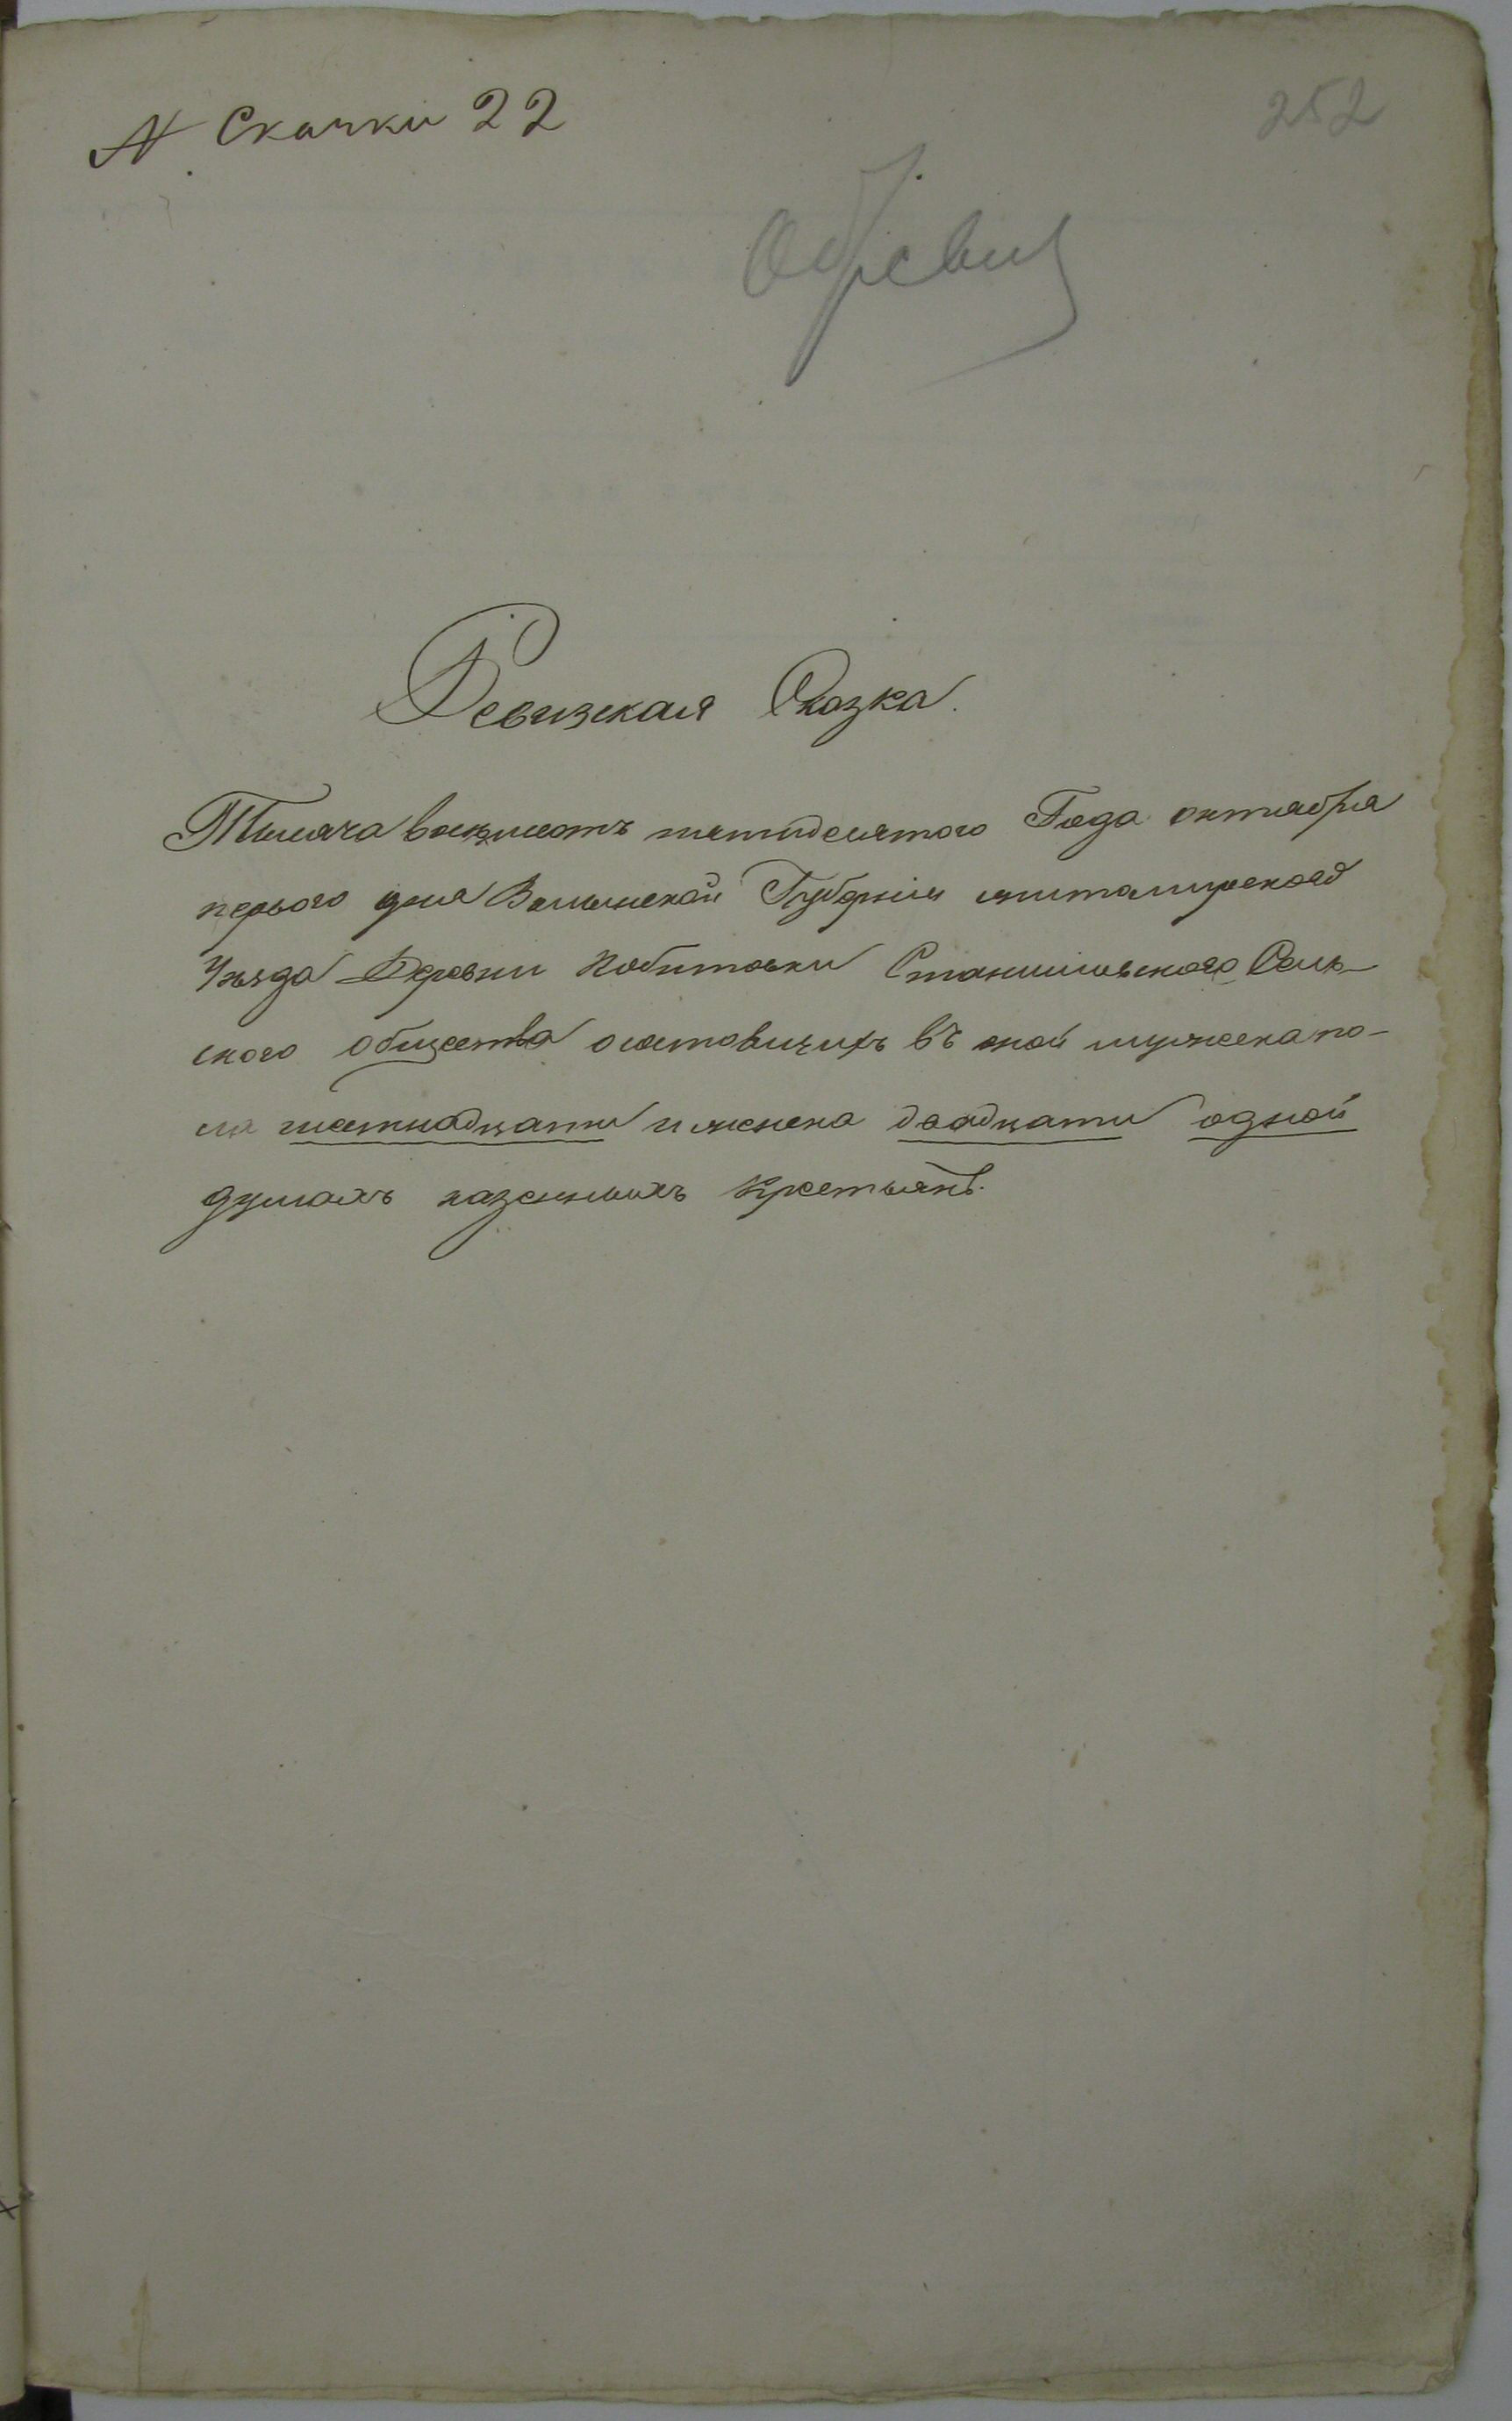 N Скачки 22
252
Ревизская Сказка.
Тысяча восемсотъ пятидесятого Года октября
первого дня Волынской Губерніи житомирского
Уѣзда Деревни Побитовки Станишовского Сель-
ского общества о состовщихъ въ оной мужеска по-
ла шестнадцати и женска двадцати одной
душахъ казенныхъ Крестьянъ.